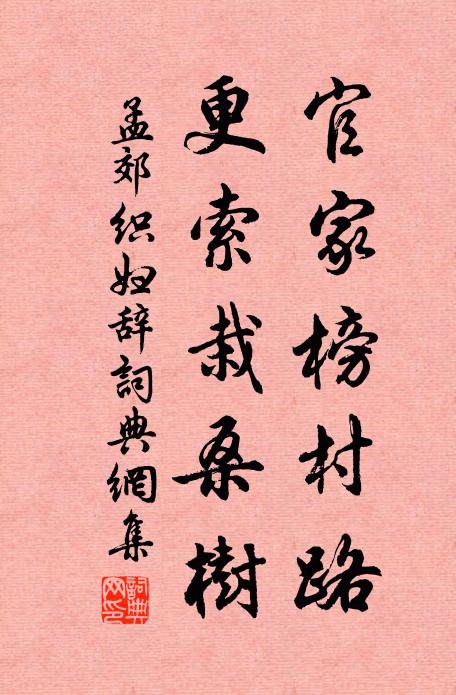 官家榜村路
更索栽桑樹
孟郊织妇辞詞典網集
詞典網印